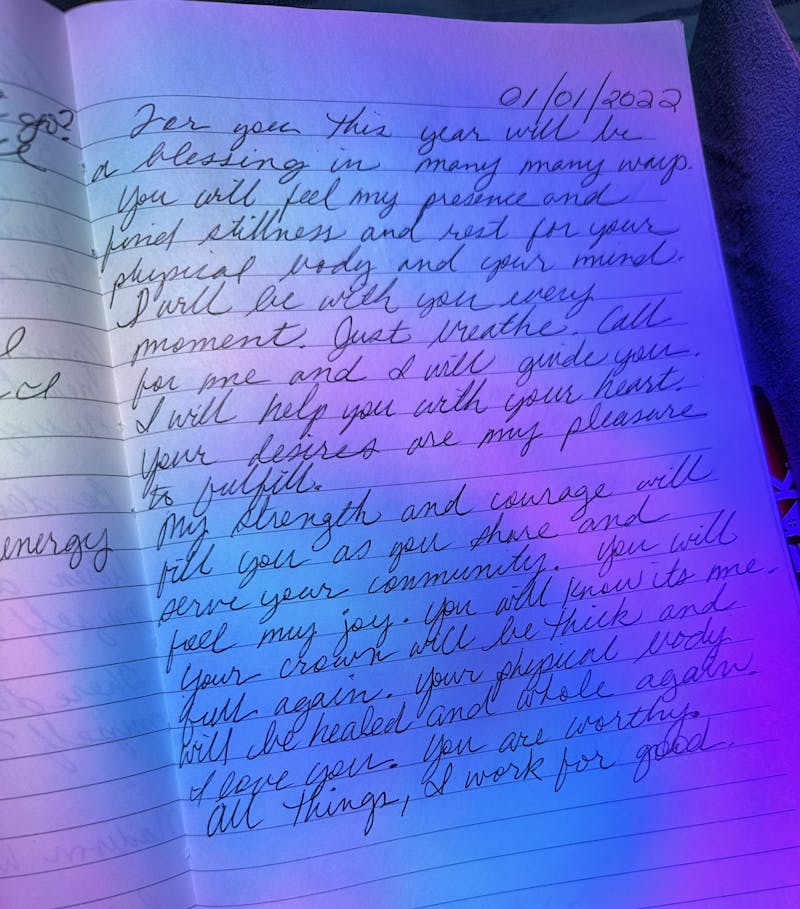 01/01/2022
For you this year will be
a blessing in many many ways.
You will feel my presence and
find stillness and rest for your
physical body and your mind.
I will be with you every
moment. Just breathe. Call
for me and I will guide you.
I will help you with your heart.
Your desires are my pleasure
to fulfill.
My strength and courage will
fill you as you share and
serve your community. You will
feel my joy. You will know its me.
Your crown will be thick and
full again. Your physical body
will be healed and whole again.
I love you. You are worthy.
All things, I work for good.
go?
energy